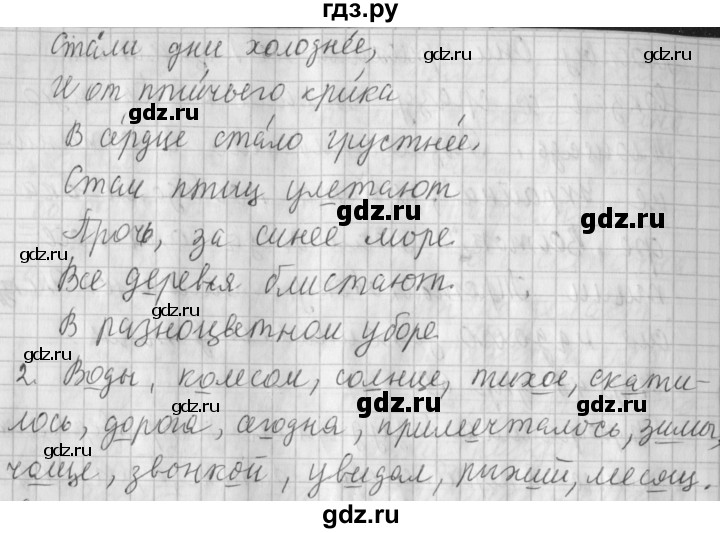 гдз.ру
Ста́ли дни холодне́е,
И от пти́чьего кри́ка
В се́рдце ста́ло грустне́е.
Стаи птиц улетают
Прочь, за синее море.
Все деревья блистают
В разноцветном уборе.
2. Воды, колесом, солнце, тихое, скати-
лось, дорога, сегодня, примечталось, зимы,
чаще, звонкой, увидал, рыжий, месяц.
gdz.ru
gdz.ru
gdz.ru
gdz.ru
gdz.ru
gdz.ru
gdz.ru
gdz.ru
gdz.ru
gdz.ru
gdz.ru
gdz.ru
gdz.ru